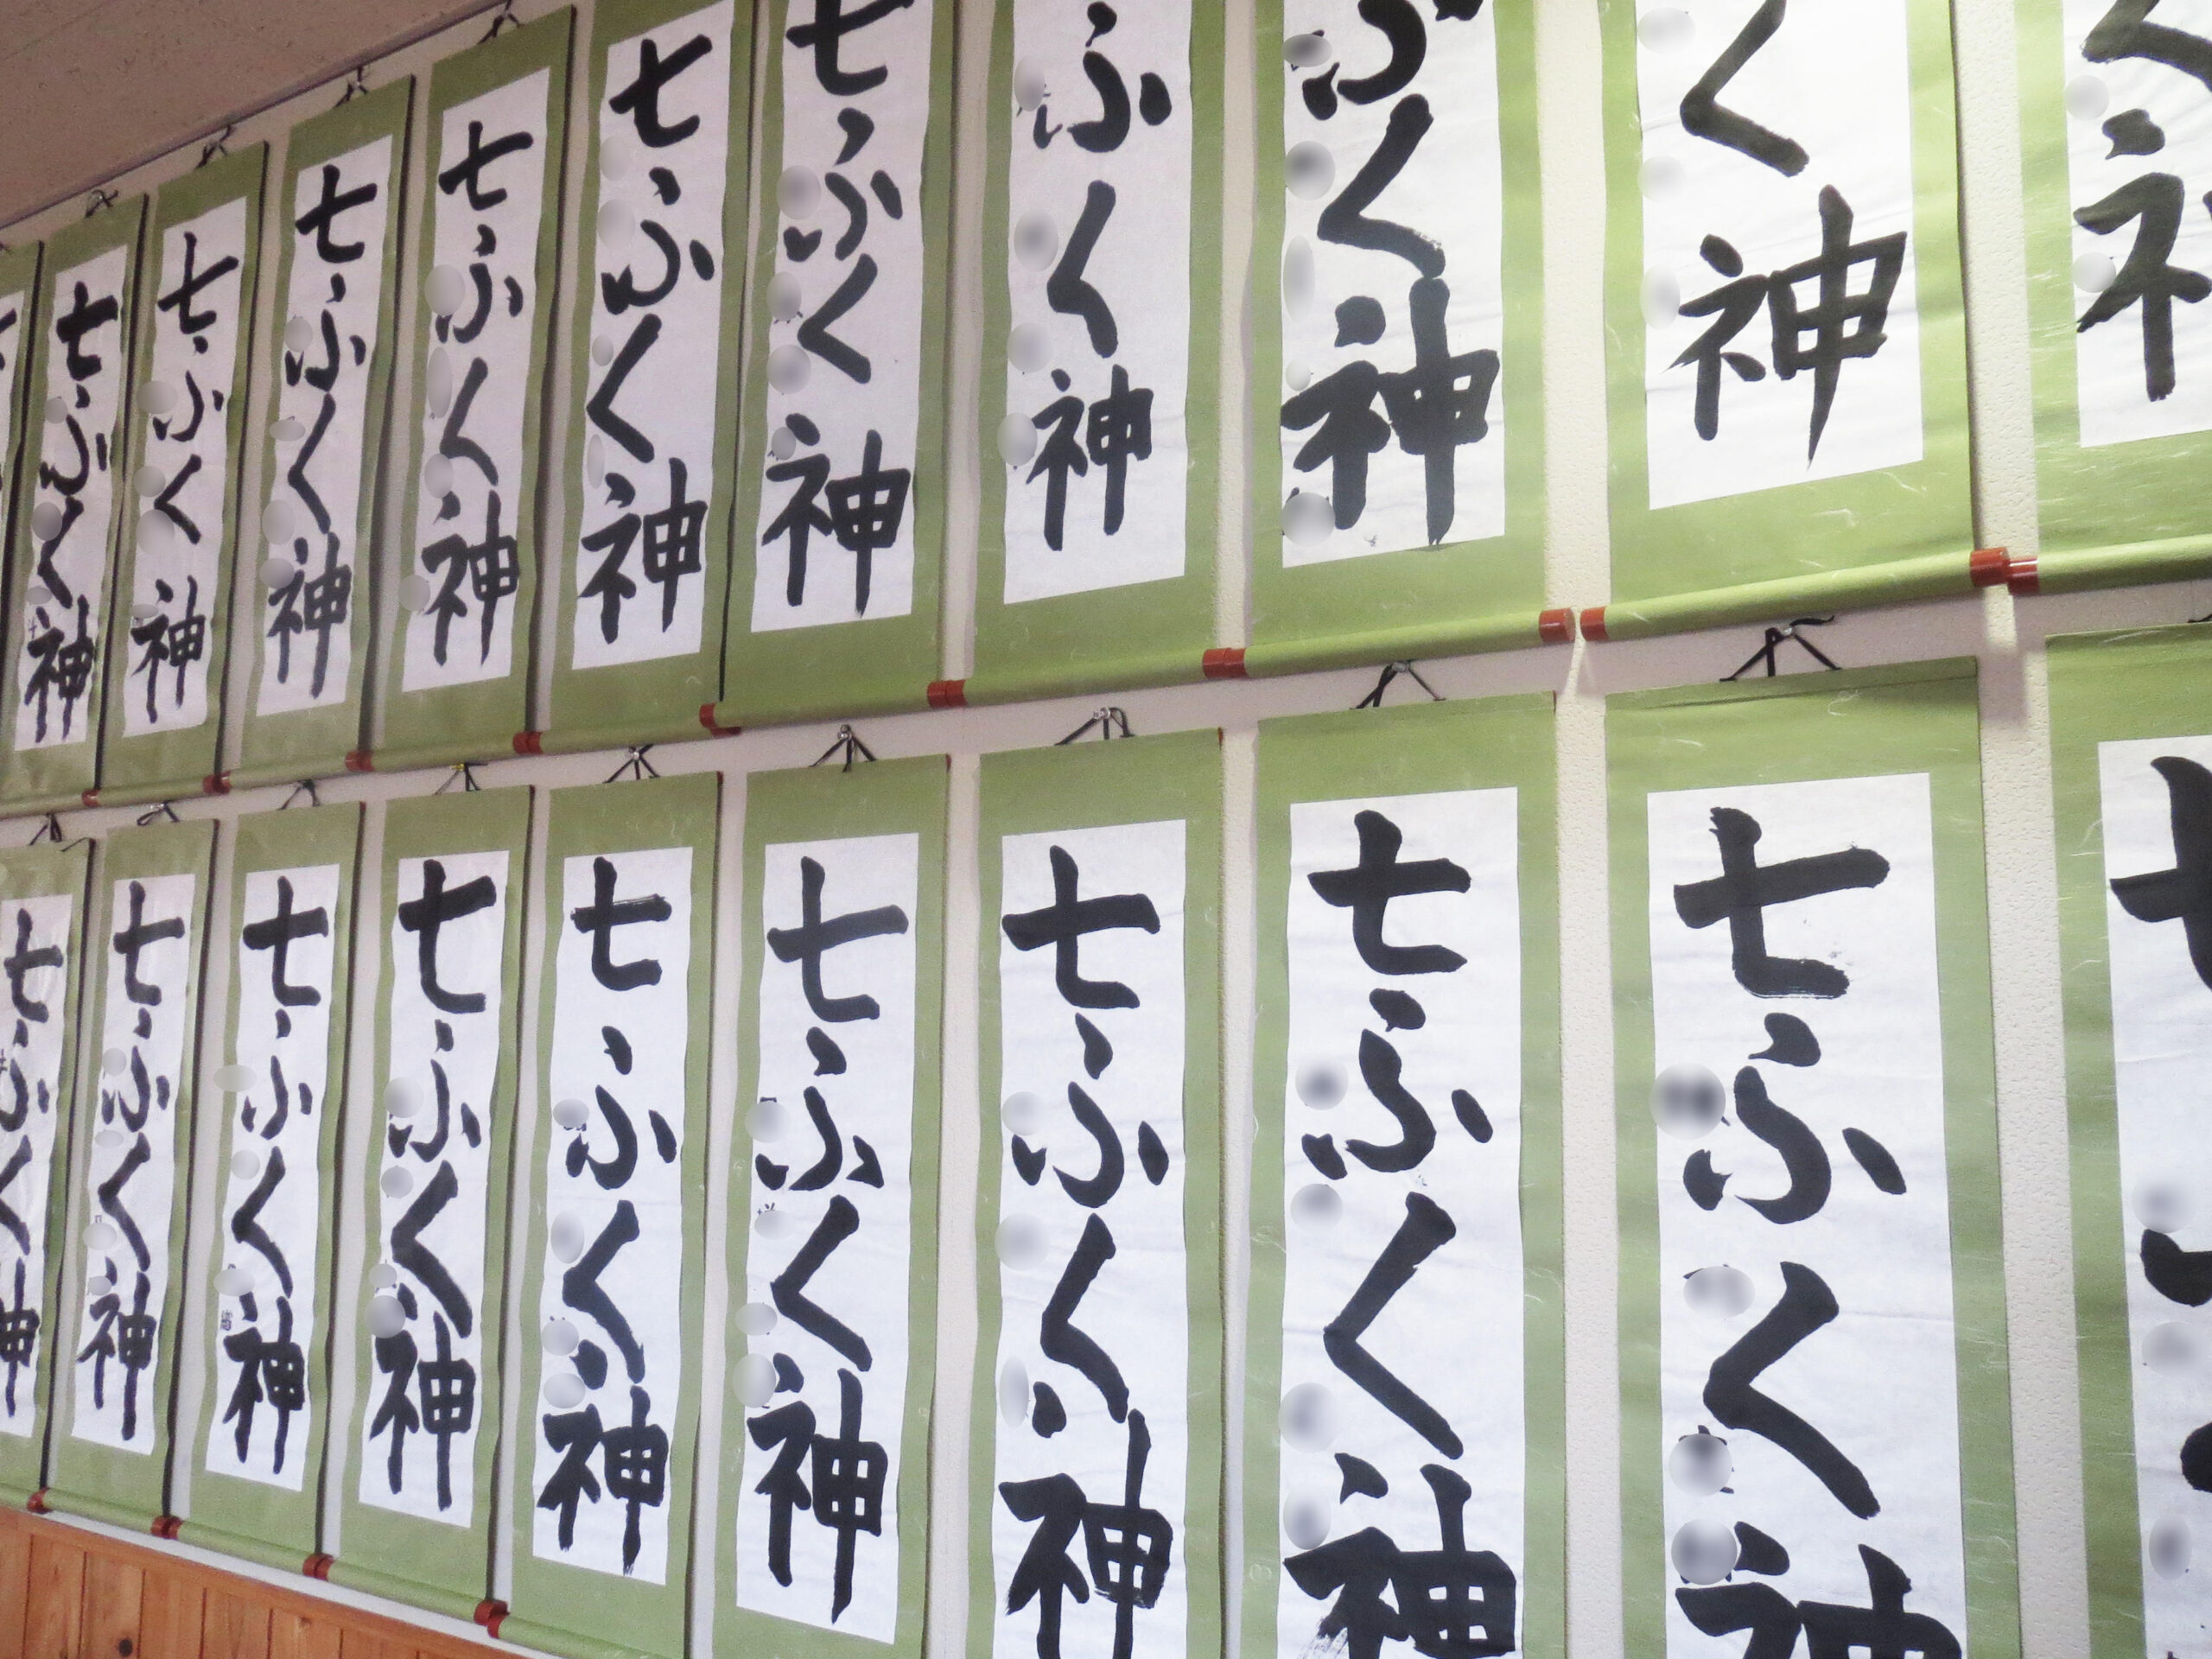 七ふく神
七ふく神
七ふく神
七ふく神
七ふく神
七ふく神
ふく神
ふく神
く神
く
七ふく神
七ふく神
七ふく神
七ふく神
七ふく神
七ふく神
七ふく神
七ふく神
七ふく神